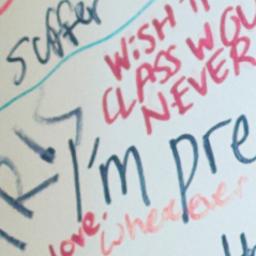 suffer
WISH
CLASS WOU
NEVER
I'm pre
love.
wherever